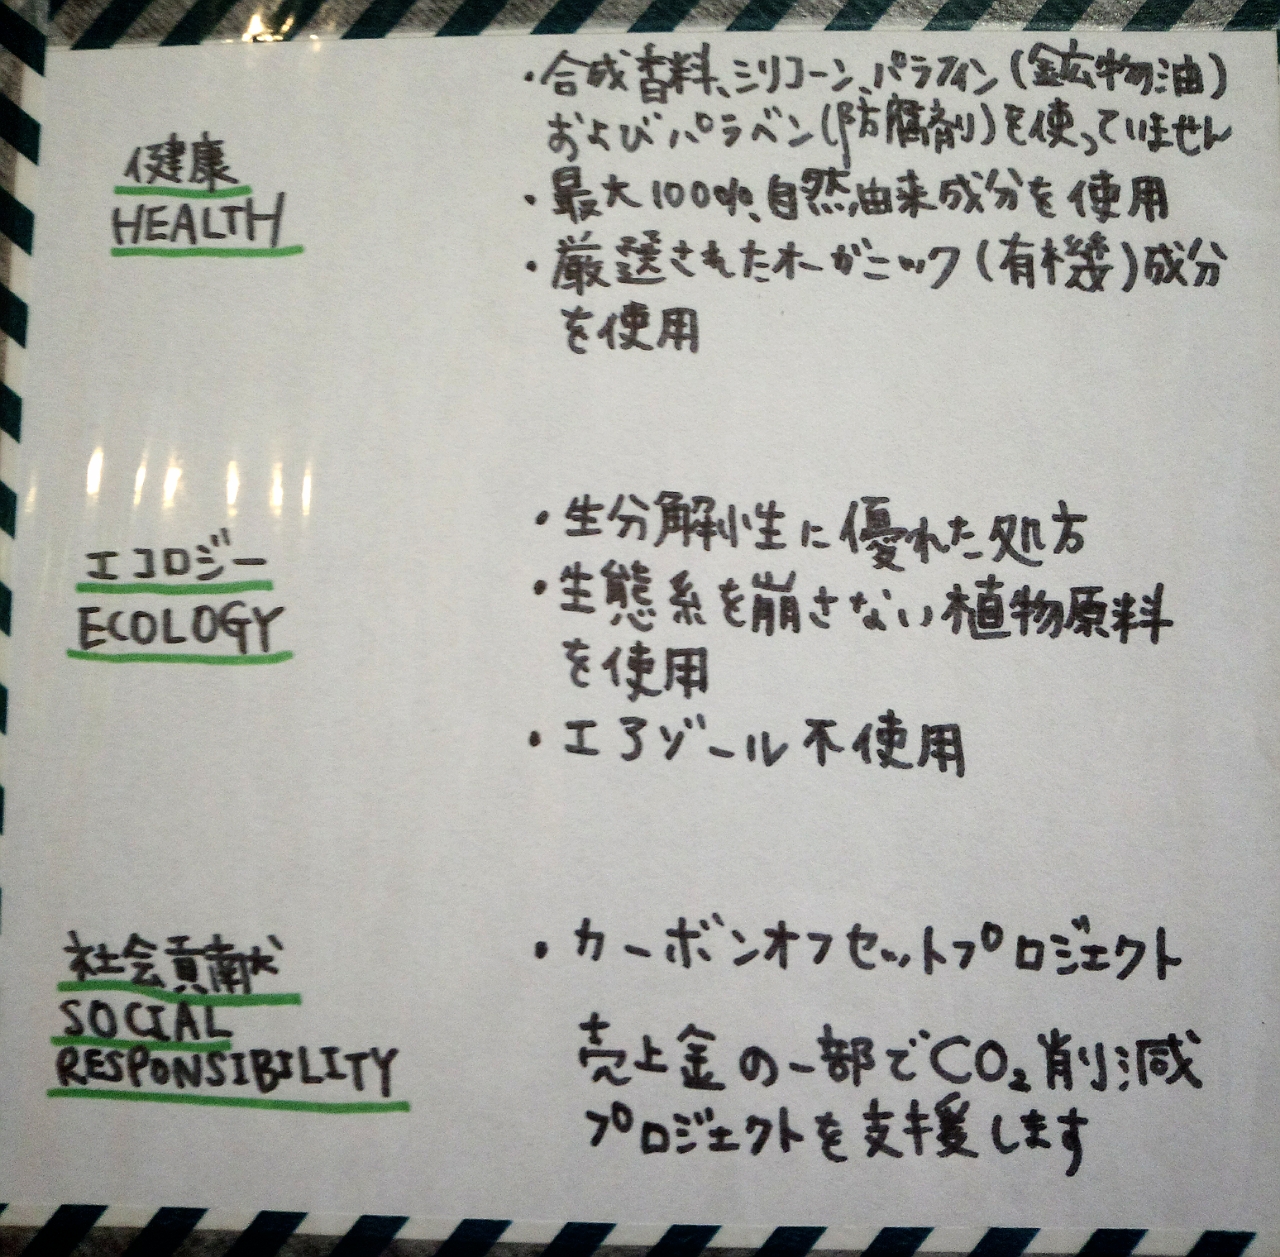 健康
HEALTH
・合成香料、シリコーン、パラフィン(鉱物油)
およびパラベン(防腐剤)を使っていません
・最大100%、自然由来成分を使用
・厳選されたオーガニック(有機)成分
を使用
エコロジー
ECOLOGY
・生分解性に優れた処方
・生態系を崩さない植物原料
を使用
・エアゾール不使用
社会貢献
SOCIAL
RESPONSIBILITY
・カーボンオフセットプロジェクト
売上金の一部でCO₂削減
プロジェクトを支援します